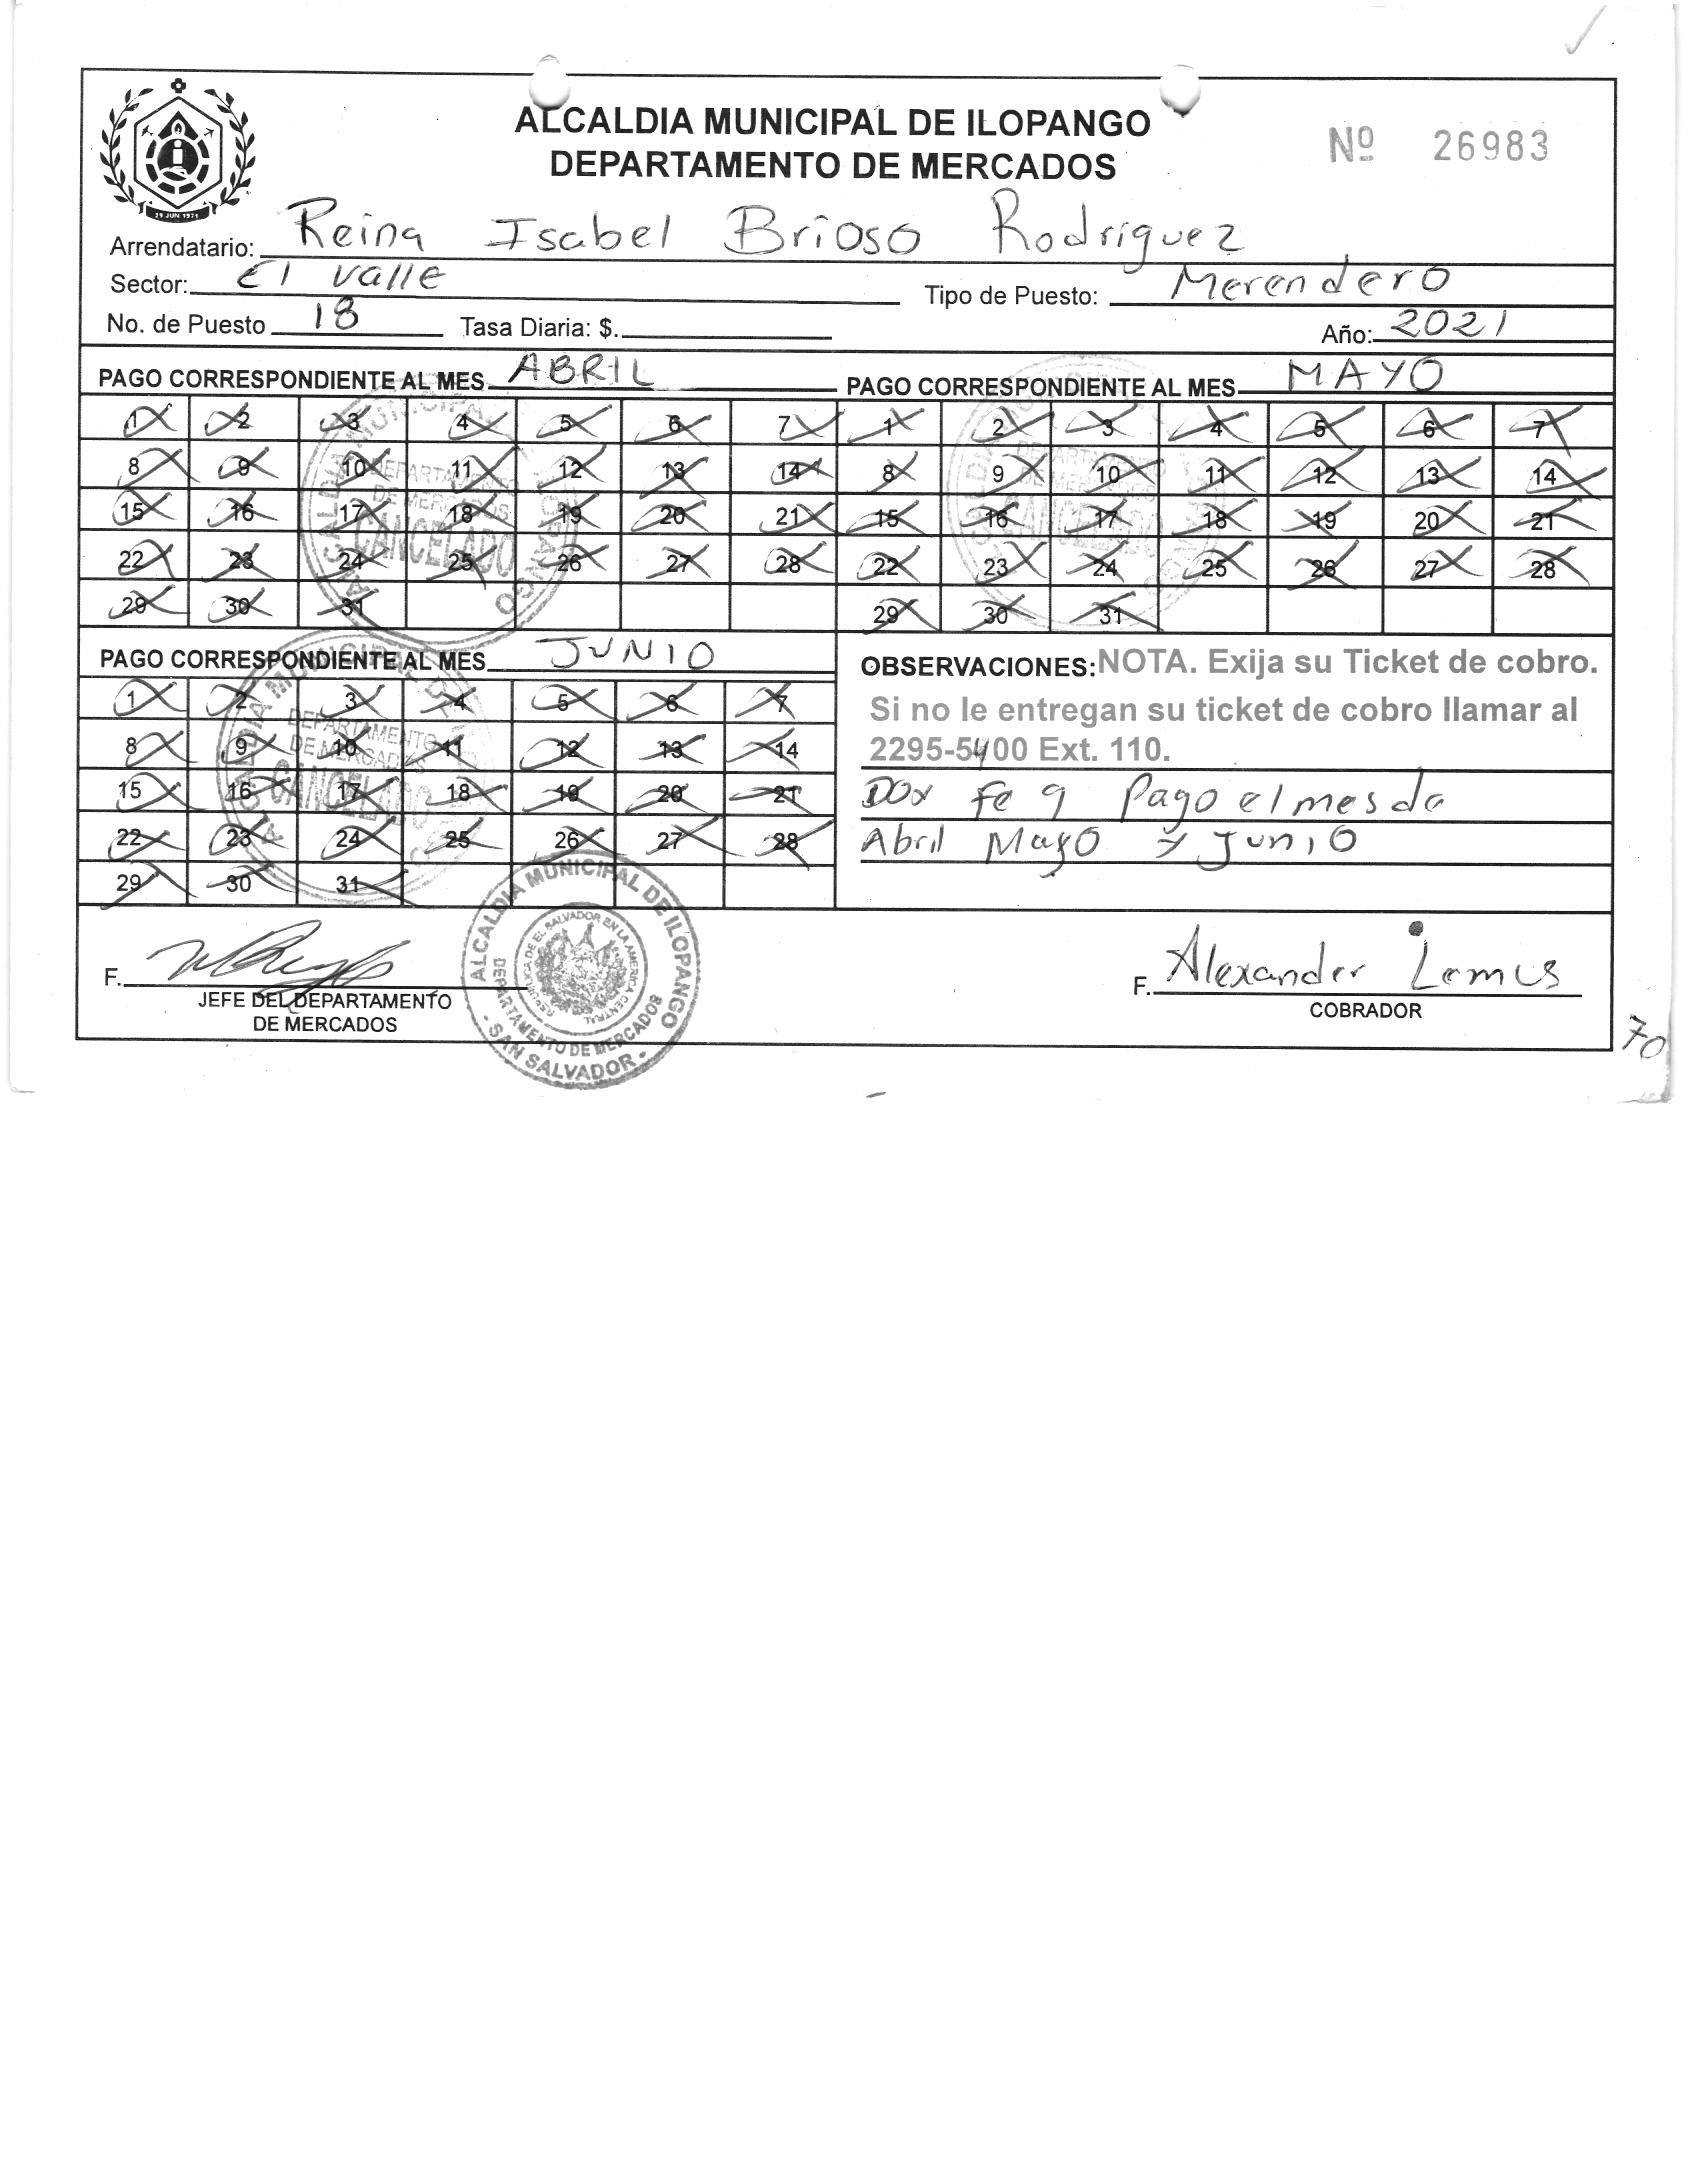 ALCALDIA MUNICIPAL DE ILOPANGO
DEPARTAMENTO DE MERCADOS
Nº 26983
29 JUN 1971
Arrendatario: Reina Isabel Brioso Rodriguez
Sector: El valle Tipo de Puesto: Merendero
No. de Puesto 18 Tasa Diaria: $. Año: 2021
PAGO CORRESPONDIENTE AL MES ABRIL
1 2 3 4 5 6 7
8 9 10 11 12 13 14
15 16 17 18 19 20 21
22 23 24 25 26 27 28
29 30 31
ALCALDIA MUNICIPAL DE ILOPANGO
DEPARTAMENTO
DE MERCADOS
CANCELADO
PAGO CORRESPONDIENTE AL MES MAYO
1 2 3 4 5 6 7
8 9 10 11 12 13 14
15 16 17 18 19 20 21
22 23 24 25 26 27 28
29 30 31
DEPARTAMENTO
DE MERCADOS
CANCELADO
PAGO CORRESPONDIENTE AL MES JUNIO
1 2 3 4 5 6 7
8 9 10 11 12 13 14
15 16 17 18 19 20 21
22 23 24 25 26 27 28
29 30 31
DEPARTAMENTO
DE MERCADOS
CANCELADO
OBSERVACIONES: NOTA. Exija su Ticket de cobro.
Si no le entregan su ticket de cobro llamar al
2295-5400 Ext. 110.
Doy fe q Pago el mes de
Abril Mayo y Junio
F.
JEFE DEL DEPARTAMENTO
DE MERCADOS
ALCALDIA MUNICIPAL DE ILOPANGO
REPUBLICA DE EL SALVADOR EN LA AMERICA CENTRAL
DEPARTAMENTO DE MERCADOS
- SAN SALVADOR -
F. Alexander Lemus
COBRADOR
70